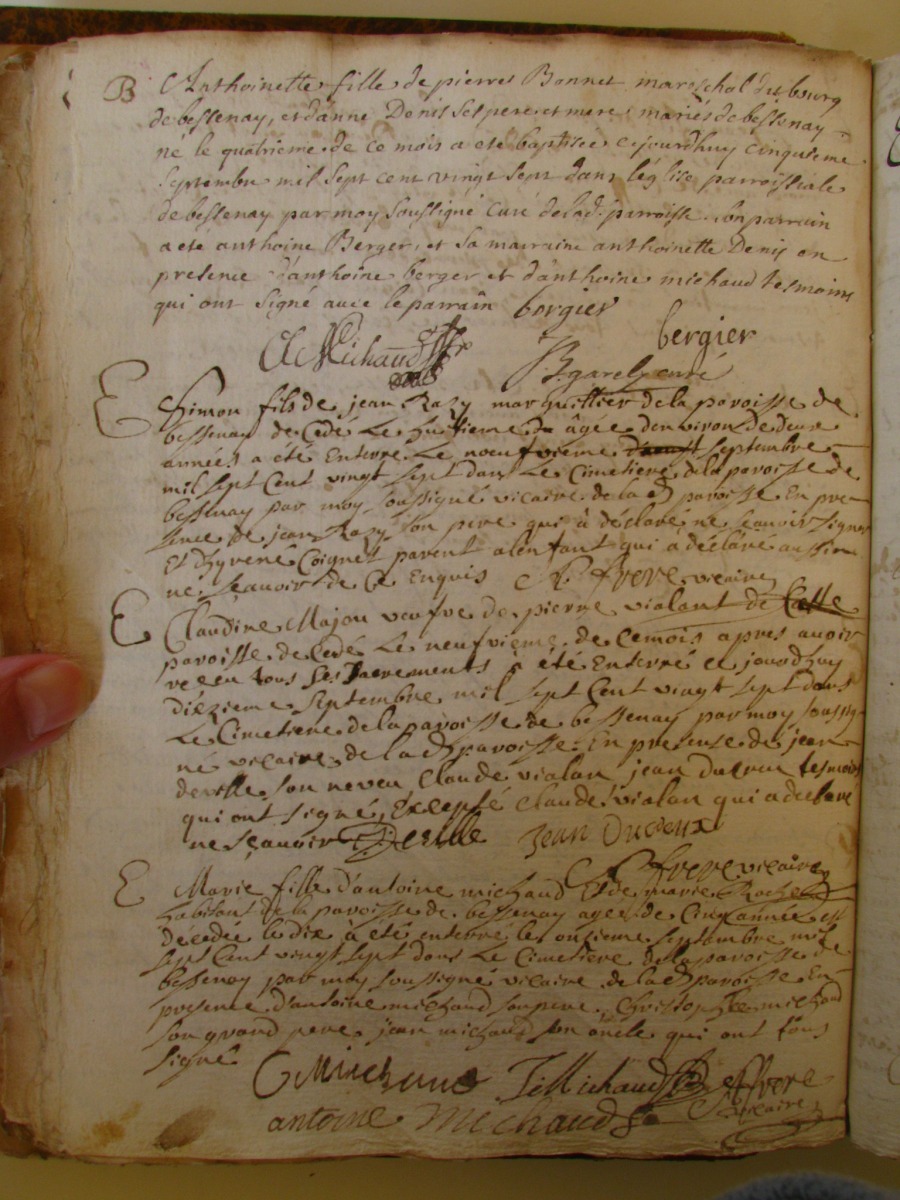 B Anthoinette fille de pierre Bonnet mareschal du bourg
de bessenay, et danne Denis ses pere et mere mariés de bessenay
ne le quatrieme de ce mois a eté baptisée cejourdhuy cinquieme
septembre mil sept cent vingt sept dans léglise parroissiale
de bessenay par moy soussigné curé de lad. parroisse. Son parrain
a ete anthoine Berger, et sa marraine anthoinette Denis en
presence d'anthoine berger et d'anthoine michaud tesmoins
qui ont signé avec le parrain bergier
bergier
Michaud
curé
E Simon fils de jean Razy marguillier de la paroisse de
bessenay de Cedé Le huitieme age denviron de deux
années a eté Enterré Le noeufvieme septembre
mil sept Cent vingt sept dans Le Cimetiere de la paroisse de
bessenay par moy soussigné vicaire de lad paroisse En pre-
sence de jean Razy son pere qui à déclaré ne sçauoir signer
Et dhyrené Coignet parent a lenfant qui a déclaré aussi
ne sçauoir de Ce Enquis frere vicaire
E Claudine Majou veufve de pierre vialant de Cette
paroisse de Cedé Le neufvieme de cemois apres auoir
receu tous ses Sacrements a été Enterré ce jourdhuy
diézieme septembre mil sept Cent vingt sept dans
Le Cimetiere de la paroisse de bessenay par moy soussig-
né vicaire de lad paroisse En presense de jean
deville son neveu Claude vialan jean ducreu tesmoins
qui ont signé Excepté Claude vialan qui a declaré
ne sçauoir Deville Jean Ducreux
frere vicaire
E Marie fille d'antoine michaud Et de marie Roche
habitant de la paroisse de bessenay agée de Cinq année et
décedée le dix a été enterré le onzieme septembre mil
sept Cent vingt sept dans Le Cimetiere de la paroisse de
bessenay par moy soussigné vicaire de lad paroisse En
presence d'antoine michaud son pere Christophle michaud
son grand pere jean michaud son oncle qui ont tous
signé
Michaud frere
antoine Michaud vicaire